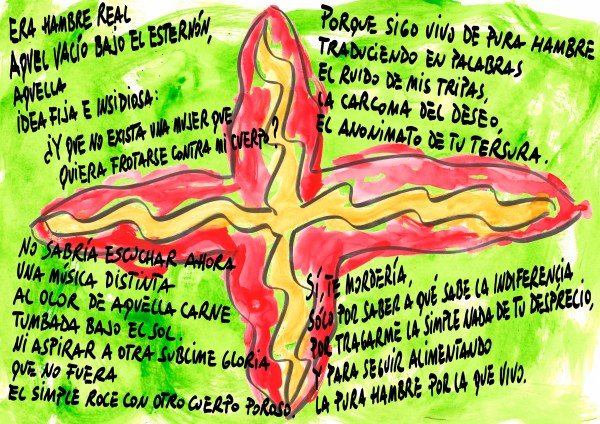 ERA HAMBRE REAL
AQUEL VACÍO BAJO EL ESTERNÓN,
AQUELLA
IDEA FIJA E INSIDIOSA:
¿Y QUE NO EXISTA UNA MUJER QUE
QUIERA FROTARSE CONTRA MI CUERPO?
PORQUE SIGO VIVO DE PURA HAMBRE
TRADUCIENDO EN PALABRAS
EL RUIDO DE MIS TRIPAS,
LA CARCOMA DEL DESEO,
EL ANONIMATO DE TU TERSURA.
NO SABRÍA ESCUCHAR AHORA
UNA MÚSICA DISTINTA
AL OLOR DE AQUELLA CARNE
TUMBADA BAJO EL SOL.
NI ASPIRAR A OTRA SUBLIME GLORIA
QUE NO FUERA
EL SIMPLE ROCE CON OTRO CUERPO POROSO.
SÍ, TE MORDERÍA,
SÓLO POR SABER A QUÉ SABE LA INDIFERENCIA
POR TRAGARME LA SIMPLE NADA DE TU DESPRECIO,
Y PARA SEGUIR ALIMENTANDO
LA PURA HAMBRE POR LA QUE VIVO.